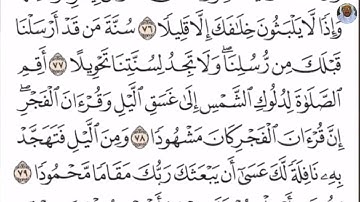 وَإِذًا لَّا يَلْبَثُونَ خِلَٰفَكَ إِلَّا قَلِيلًا ٧٦ سُنَّةَ مَن قَدْ أَرْسَلْنَا
قَبْلَكَ مِن رُّسُلِنَا ۖ وَلَا تَجِدُ لِسُنَّتِنَا تَحْوِيلًا ٧٧ أَقِمِ
ٱلصَّلَوٰةَ لِدُلُوكِ ٱلشَّمْسِ إِلَىٰ غَسَقِ ٱلَّيْلِ وَقُرْءَانَ ٱلْفَجْرِ ۖ
إِنَّ قُرْءَانَ ٱلْفَجْرِ كَانَ مَشْهُودًا ٧٨ وَمِنَ ٱلَّيْلِ فَتَهَجَّدْ
بِهِۦ نَافِلَةً لَّكَ عَسَىٰٓ أَن يَبْعَثَكَ رَبُّكَ مَقَامًا مَّحْمُودًا ٧٩